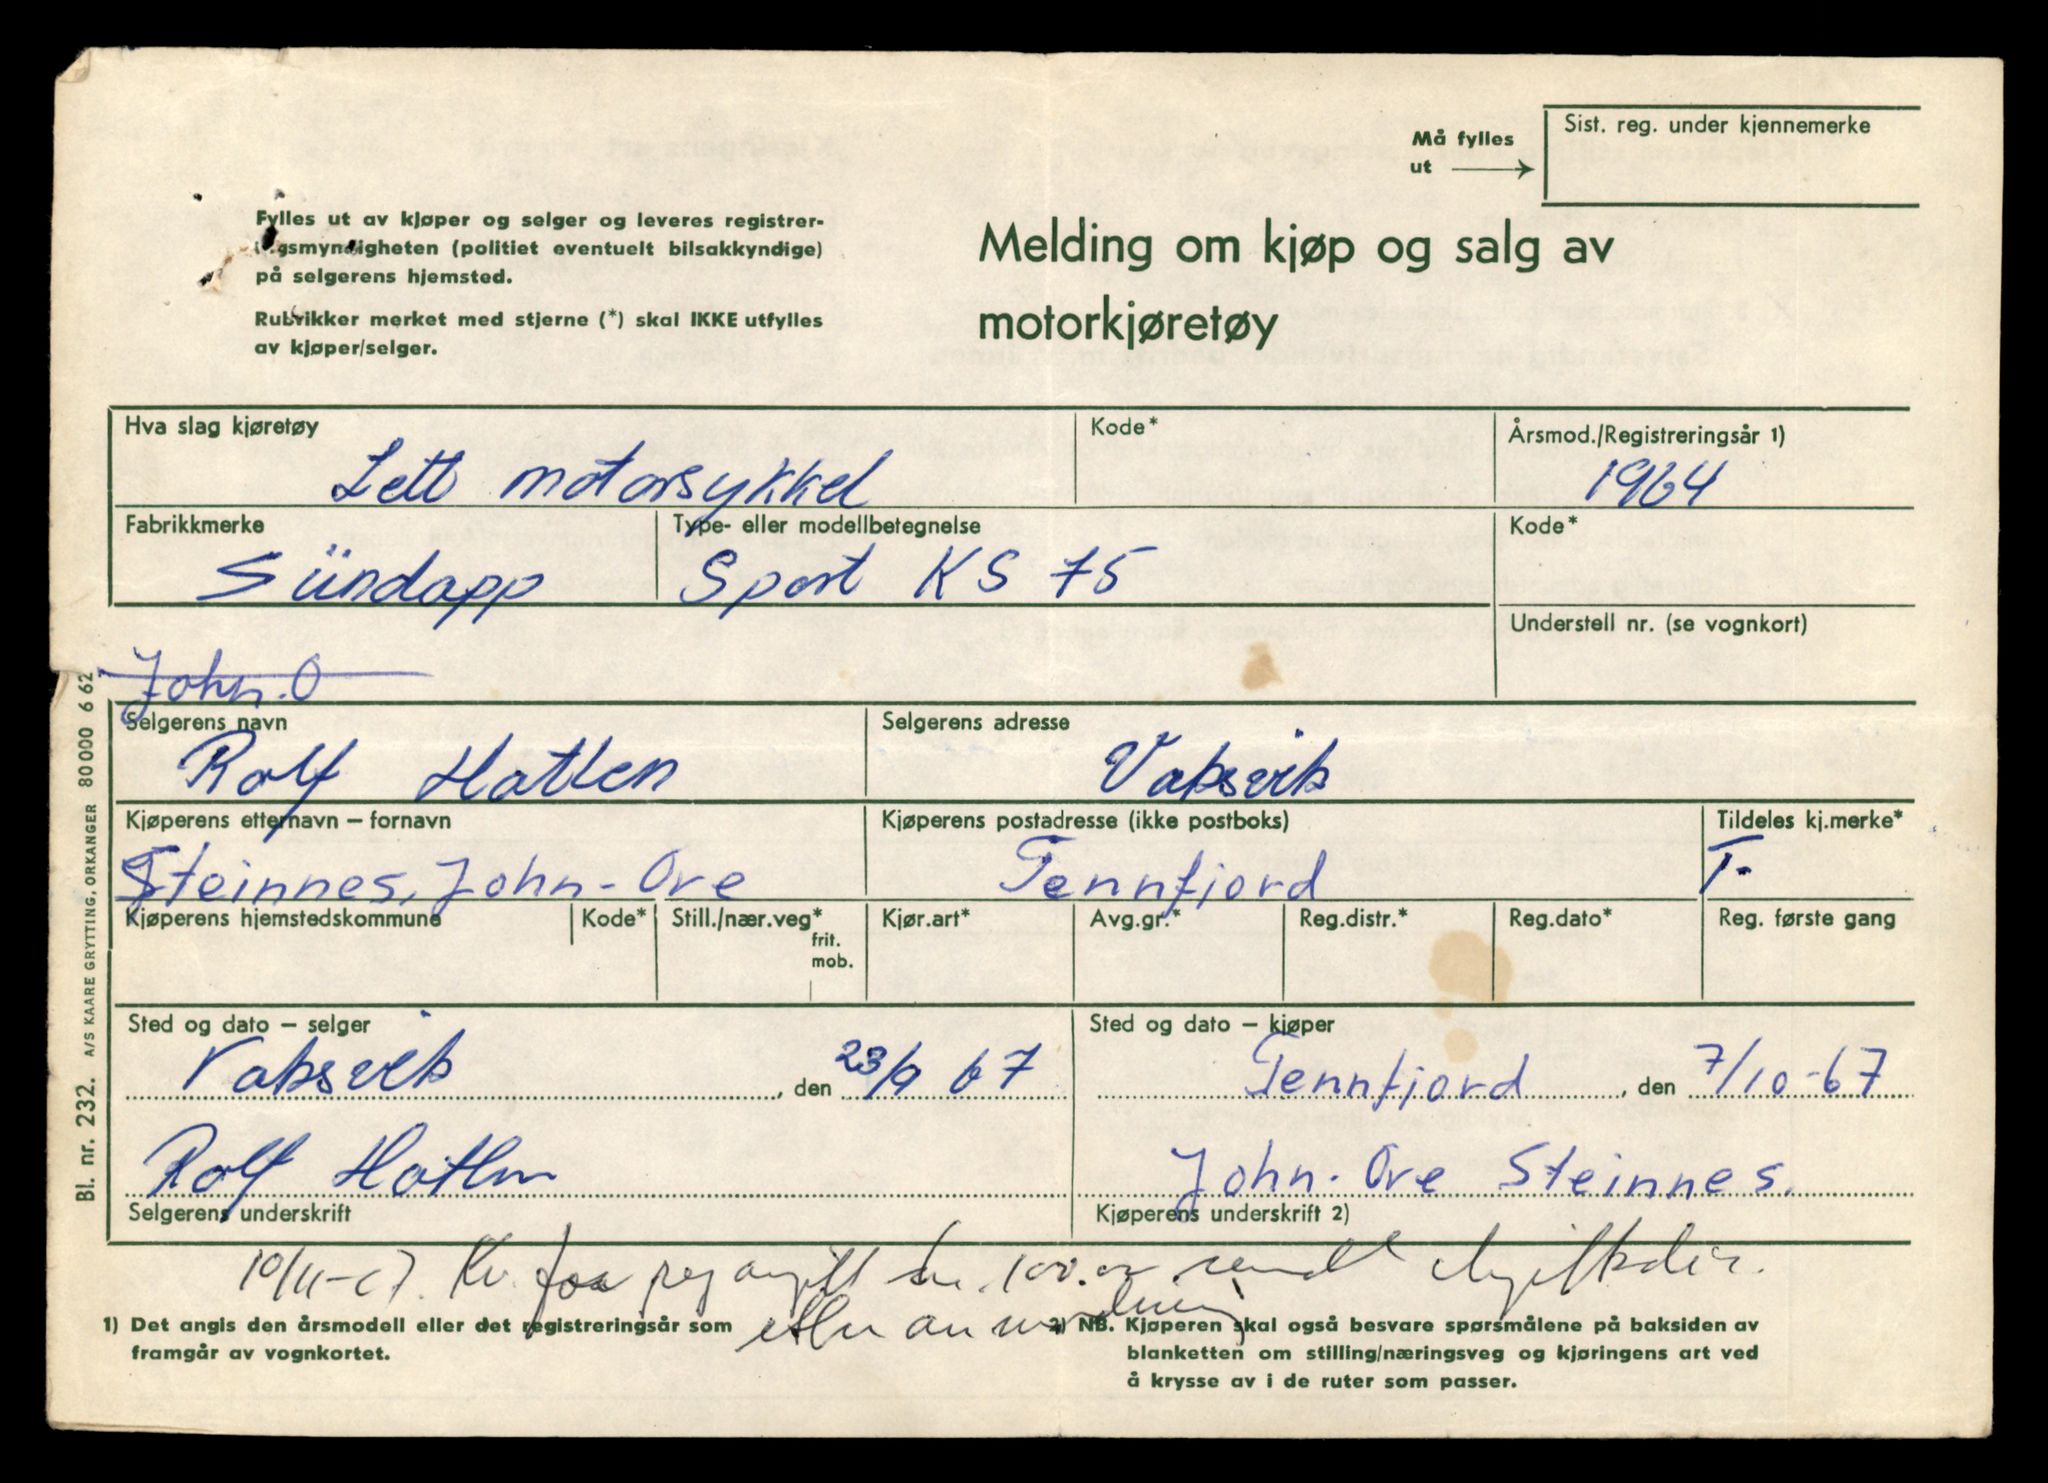 Må fylles
ut →
Sist. reg. under kjennemerke
Fylles ut av kjøper og selger og leveres registrer-
ingsmyndigheten (politiet eventuelt bilsakkyndige)
på selgerens hjemsted.
Rubrikker merket med stjerne (*) skal IKKE utfylles
av kjøper/selger.
Melding om kjøp og salg av
motorkjøretøy
Hva slag kjøretøy
Kode*
Årsmod./Registreringsår 1)
Lett motorsykkel
1964
Fabrikkmerke
Type- eller modellbetegnelse
Kode*
Sündapp
Sport KS 75
Understell nr. (se vognkort)
John. O
Selgerens navn
Selgerens adresse
Rolf Hatlen
Vaksvik
Kjøperens etternavn – fornavn
Kjøperens postadresse (ikke postboks)
Tildeles kj.merke*
Steinnes, John-Ove
Tennfjord
T-
Kjøperens hjemstedskommune
Kode*
Still./nær.veg*
frit.
mob.
Kjør.art*
Avg.gr.*
Reg.distr.*
Reg.dato*
Reg. første gang
Sted og dato – selger
Sted og dato – kjøper
Vaksvik, den 23/9 67
Tennfjord, den 7/10-67
Rolf Hatlen
John-Ove Steinnes.
Selgerens underskrift
Kjøperens underskrift 2)
10/11-67. Kv. for reg avgift kr. 100.00 sendt Avgiftsdir.
etter anmodning
1) Det angis den årsmodell eller det registreringsår som
framgår av vognkortet.
2) NB. Kjøperen skal også besvare spørsmålene på baksiden av
blanketten om stilling/næringsveg og kjøringens art ved
å krysse av i de ruter som passer.
Bl. nr. 232. A/S KAARE GRYTTING, ORKANGER 80000 6 62